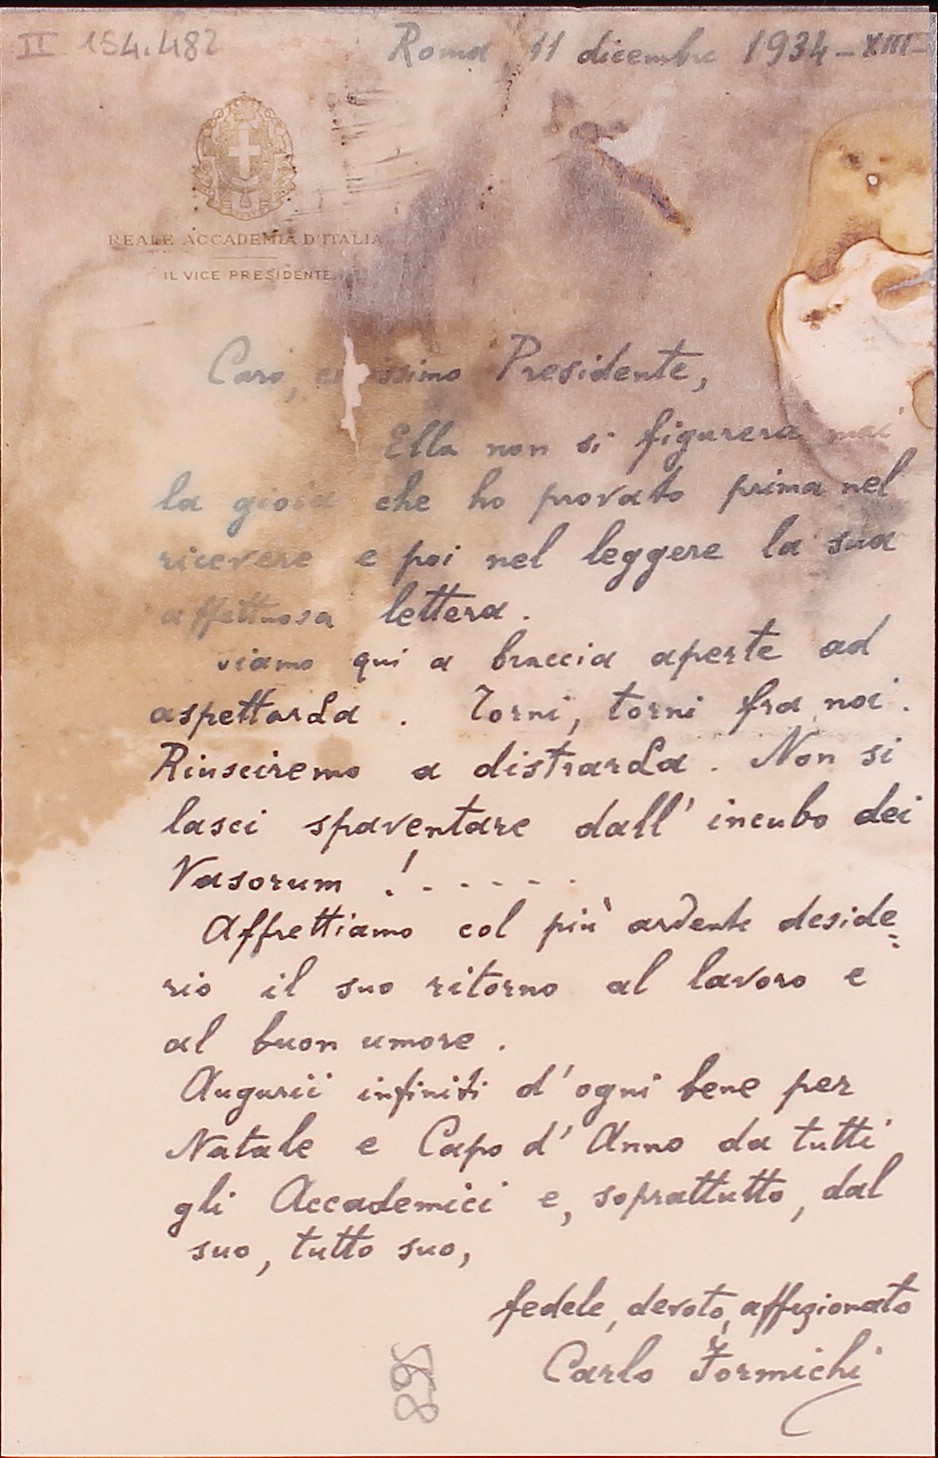 II 154.482
Roma, 11 dicembre 1934-XIII-
REALE ACCADEMIA D'ITALIA
IL VICE PRESIDENTE
Caro, Presidente,
Ella non si figurerà mai
la gioia che ho provato prima nel
ricevere e poi nel leggere la sua
affettuosa lettera.
Siamo qui a braccia aperte ad
aspettarLa. Torni, torni fra noi.
Riusciremo a distrarLa. Non si
lasci spaventare dall'incubo dei
Vasorum !. - - - - - .
Affrettiamo col più ardente deside=
rio il suo ritorno al lavoro e
al buon umore.
Augurii infiniti d'ogni bene per
Natale e Capo d'Anno da tutti
gli Accademici e, soprattutto, dal
suo, tutto suo,
fedele, devoto, affezionato
Carlo Formichi
5698